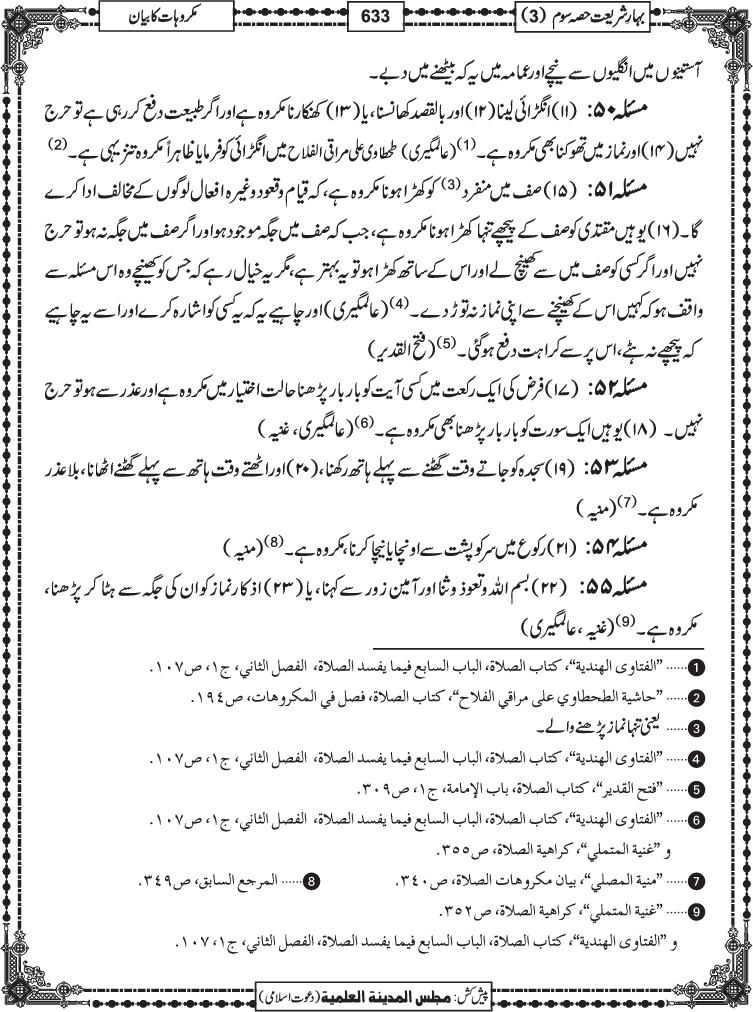 بہارِ شریعت حصہ سوم (3)
633
مکروہات کا بیان
آستینوں میں انگلیوں سے نیچے اور عمامہ میں یہ کہ بیٹھنے میں دبے۔
مسئلہ ۵۰: (۱۱) انگڑائی لینا (۱۲) اور بالقصد کھانسنا، یا (۱۳) کھنکارنا مکروہ ہے اور اگر طبیعت دفع کر رہی ہے تو حرج
نہیں (۱۴) اور نماز میں تھوکنا بھی مکروہ ہے۔ (1) (عالمگیری) طحطاوی علی مراقی الفلاح میں انگڑائی کو فرمایا ظاہراً مکروہ تنزیہی ہے۔ (2)
مسئلہ ۵۱: (۱۵) صف میں منفرد (3) کو کھڑا ہونا مکروہ ہے، کہ قیام و قعود وغیرہ افعال لوگوں کے مخالف ادا کرے
گا۔ (۱۶) یوہیں مقتدی کو صف کے پیچھے تنہا کھڑا ہونا مکروہ ہے، جب کہ صف میں جگہ موجود ہو اور اگر صف میں جگہ نہ ہو تو حرج
نہیں اور اگر کسی کو صف میں سے کھینچ لے اور اس کے ساتھ کھڑا ہو تو یہ بہتر ہے، مگر یہ خیال رہے کہ جس کو کھینچے وہ اس مسئلہ سے
واقف ہو کہ کہیں اس کے کھینچنے سے اپنی نماز نہ توڑ دے۔ (4) (عالمگیری) اور چاہیے یہ کہ یہ کسی کو اشارہ کرے اور اسے یہ چاہیے
کہ پیچھے نہ ہٹے، اس پر سے کراہت دفع ہوگئی۔ (5) (فتح القدیر)
مسئلہ ۵۲: (۱۷) فرض کی ایک رکعت میں کسی آیت کو بار بار پڑھنا حالت اختیار میں مکروہ ہے اور عذر سے ہو تو حرج
نہیں۔ (۱۸) یوہیں ایک سورت کو بار بار پڑھنا بھی مکروہ ہے۔ (6) (عالمگیری، غنیہ)
مسئلہ ۵۳: (۱۹) سجدہ کو جاتے وقت گھٹنے سے پہلے ہاتھ رکھنا، (۲۰) اور اٹھتے وقت ہاتھ سے پہلے گھٹنے اٹھانا، بلا عذر
مکروہ ہے۔ (7) (منیہ)
مسئلہ ۵۴: (۲۱) رکوع میں سر کو پشت سے اونچا یا نیچا کرنا، مکروہ ہے۔ (8) (منیہ)
مسئلہ ۵۵: (۲۲) بسم اللہ و تعوذ و ثنا اور آمین زور سے کہنا، یا (۲۳) اذکار نماز کو ان کی جگہ سے ہٹا کر پڑھنا،
مکروہ ہے۔ (9) (غنیہ، عالمگیری)
1 ...... ”الفتاوی الهندية“، کتاب الصلاة، الباب السابع فيما يفسد الصلاة، الفصل الثاني، ج١، ص١٠٧.
2 ...... ”حاشية الطحطاوي على مراقي الفلاح“، کتاب الصلاة، فصل في المکروهات، ص١٩٤.
3 ...... یعنی تنہا نماز پڑھنے والے۔
4 ...... ”الفتاوی الهندية“، کتاب الصلاة، الباب السابع فيما يفسد الصلاة، الفصل الثاني، ج١، ص١٠٧.
5 ...... ”فتح القدير“، کتاب الصلاة، باب الإمامة، ج١، ص٣٠٩.
6 ...... ”الفتاوی الهندية“، کتاب الصلاة، الباب السابع فيما يفسد الصلاة، الفصل الثاني، ج١، ص١٠٧.
و ”غنية المتملي“، کراهية الصلاة، ص٣٥٥.
7 ...... ”منية المصلي“، بيان مکروهات الصلاة، ص٣٤٠. 8 ...... المرجع السابق، ص٣٤٩.
9 ...... ”غنية المتملي“، کراهية الصلاة، ص٣٥٢.
و ”الفتاوی الهندية“، کتاب الصلاة، الباب السابع فيما يفسد الصلاة، الفصل الثاني، ج١، ١٠٧.
پیش کش: مجلس المدينة العلمية (دعوت اسلامی)